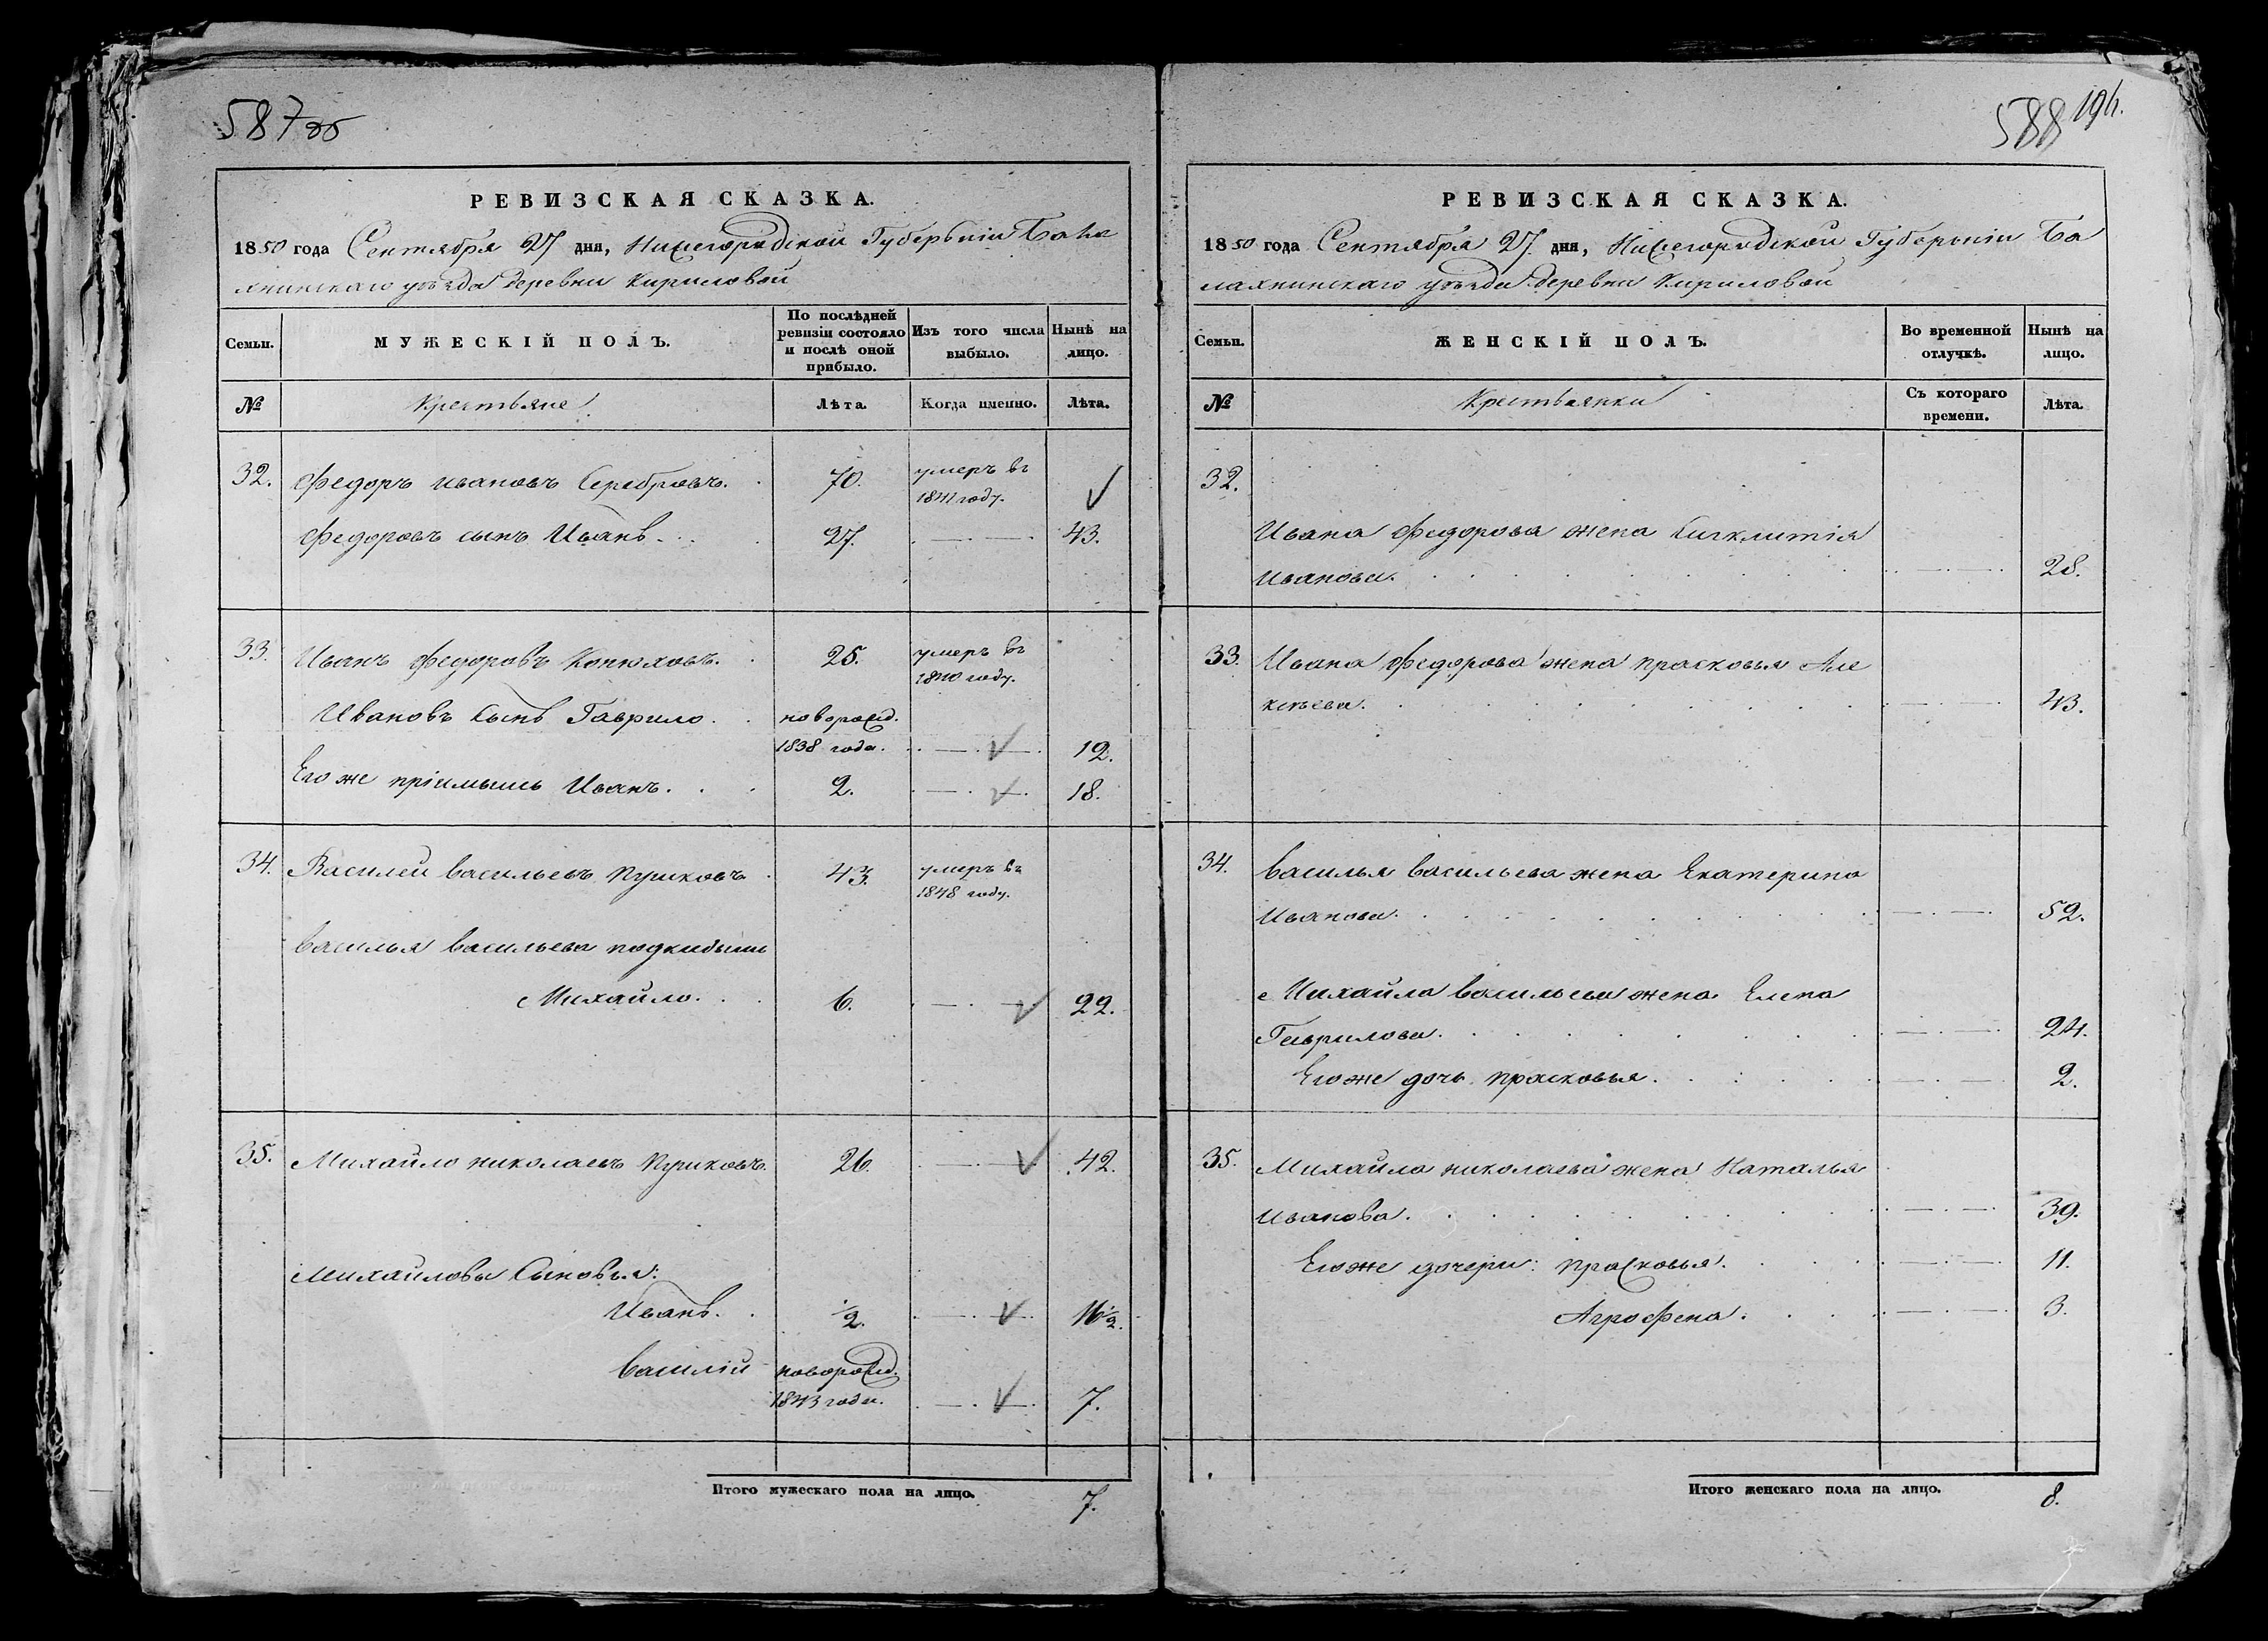 587об
РЕВИЗСКАЯ СКАЗКА.
1850 года Сентября 27 дня, Нижегородской Губерніи Бала
хнинскаго уѣзда деревни Кириловой
Семьи.
МУЖЕСКІЙ ПОЛЪ.
По послѣдней
ревизіи состояло
и послѣ оной
прибыло.
Изъ того числа
выбыло.
Нынѣ на
лицо.
№
Крестьяне
Лѣта.
Когда именно.
Лѣта.
32. Федоръ Ивановъ Серебровъ. 70. умеръ въ
1841 году.
Федоровъ сынъ Иванъ 27. 43.
33. Иванъ Федоровъ Конюховъ. 25. умеръ въ
1840 году.
Ивановъ Сынъ Гаврило. новорожд.
1838 года. 12.
Его же пріимышъ Иванъ. 2. 18.
34. Василей васильевъ Пушковъ 43. умеръ въ
1848 году.
василья васильева подкидышь
Михайло. 6. 22.
35. Михайло николаевъ Пушковъ. 26. 42.
Михайловы Сыновья:
Иванъ. ½. 16½.
василій новорожд.
1843 года. 7.
Итого мужескаго пола на лицо. 7.
588 196.
РЕВИЗСКАЯ СКАЗКА.
1850 года Сентября 27. дня, Нижегородской Губерніи Ба
лахнинскаго уѣзда деревни Кириловой
Семьи.
ЖЕНСКІЙ ПОЛЪ.
Во временной
отлучкѣ.
Нынѣ на
лицо.
№
Крестьянки
Съ котораго
времени.
Лѣта.
32.
Ивана Федорова жена
Иванова. 28.
33. Ивана Федорова жена прасковья Але
ксѣева. 43.
34. василья васильева жена Екатерина
Иванова. 52.
Михайла васильева жена Елена
Гаврилова. 24.
Его же дочь прасковья. 2.
35. Михайла николаева жена Наталья
Иванова. 39.
Его же дочери: прасковья. 11.
Аграфена. 3.
Итого женскаго пола на лицо. 8.